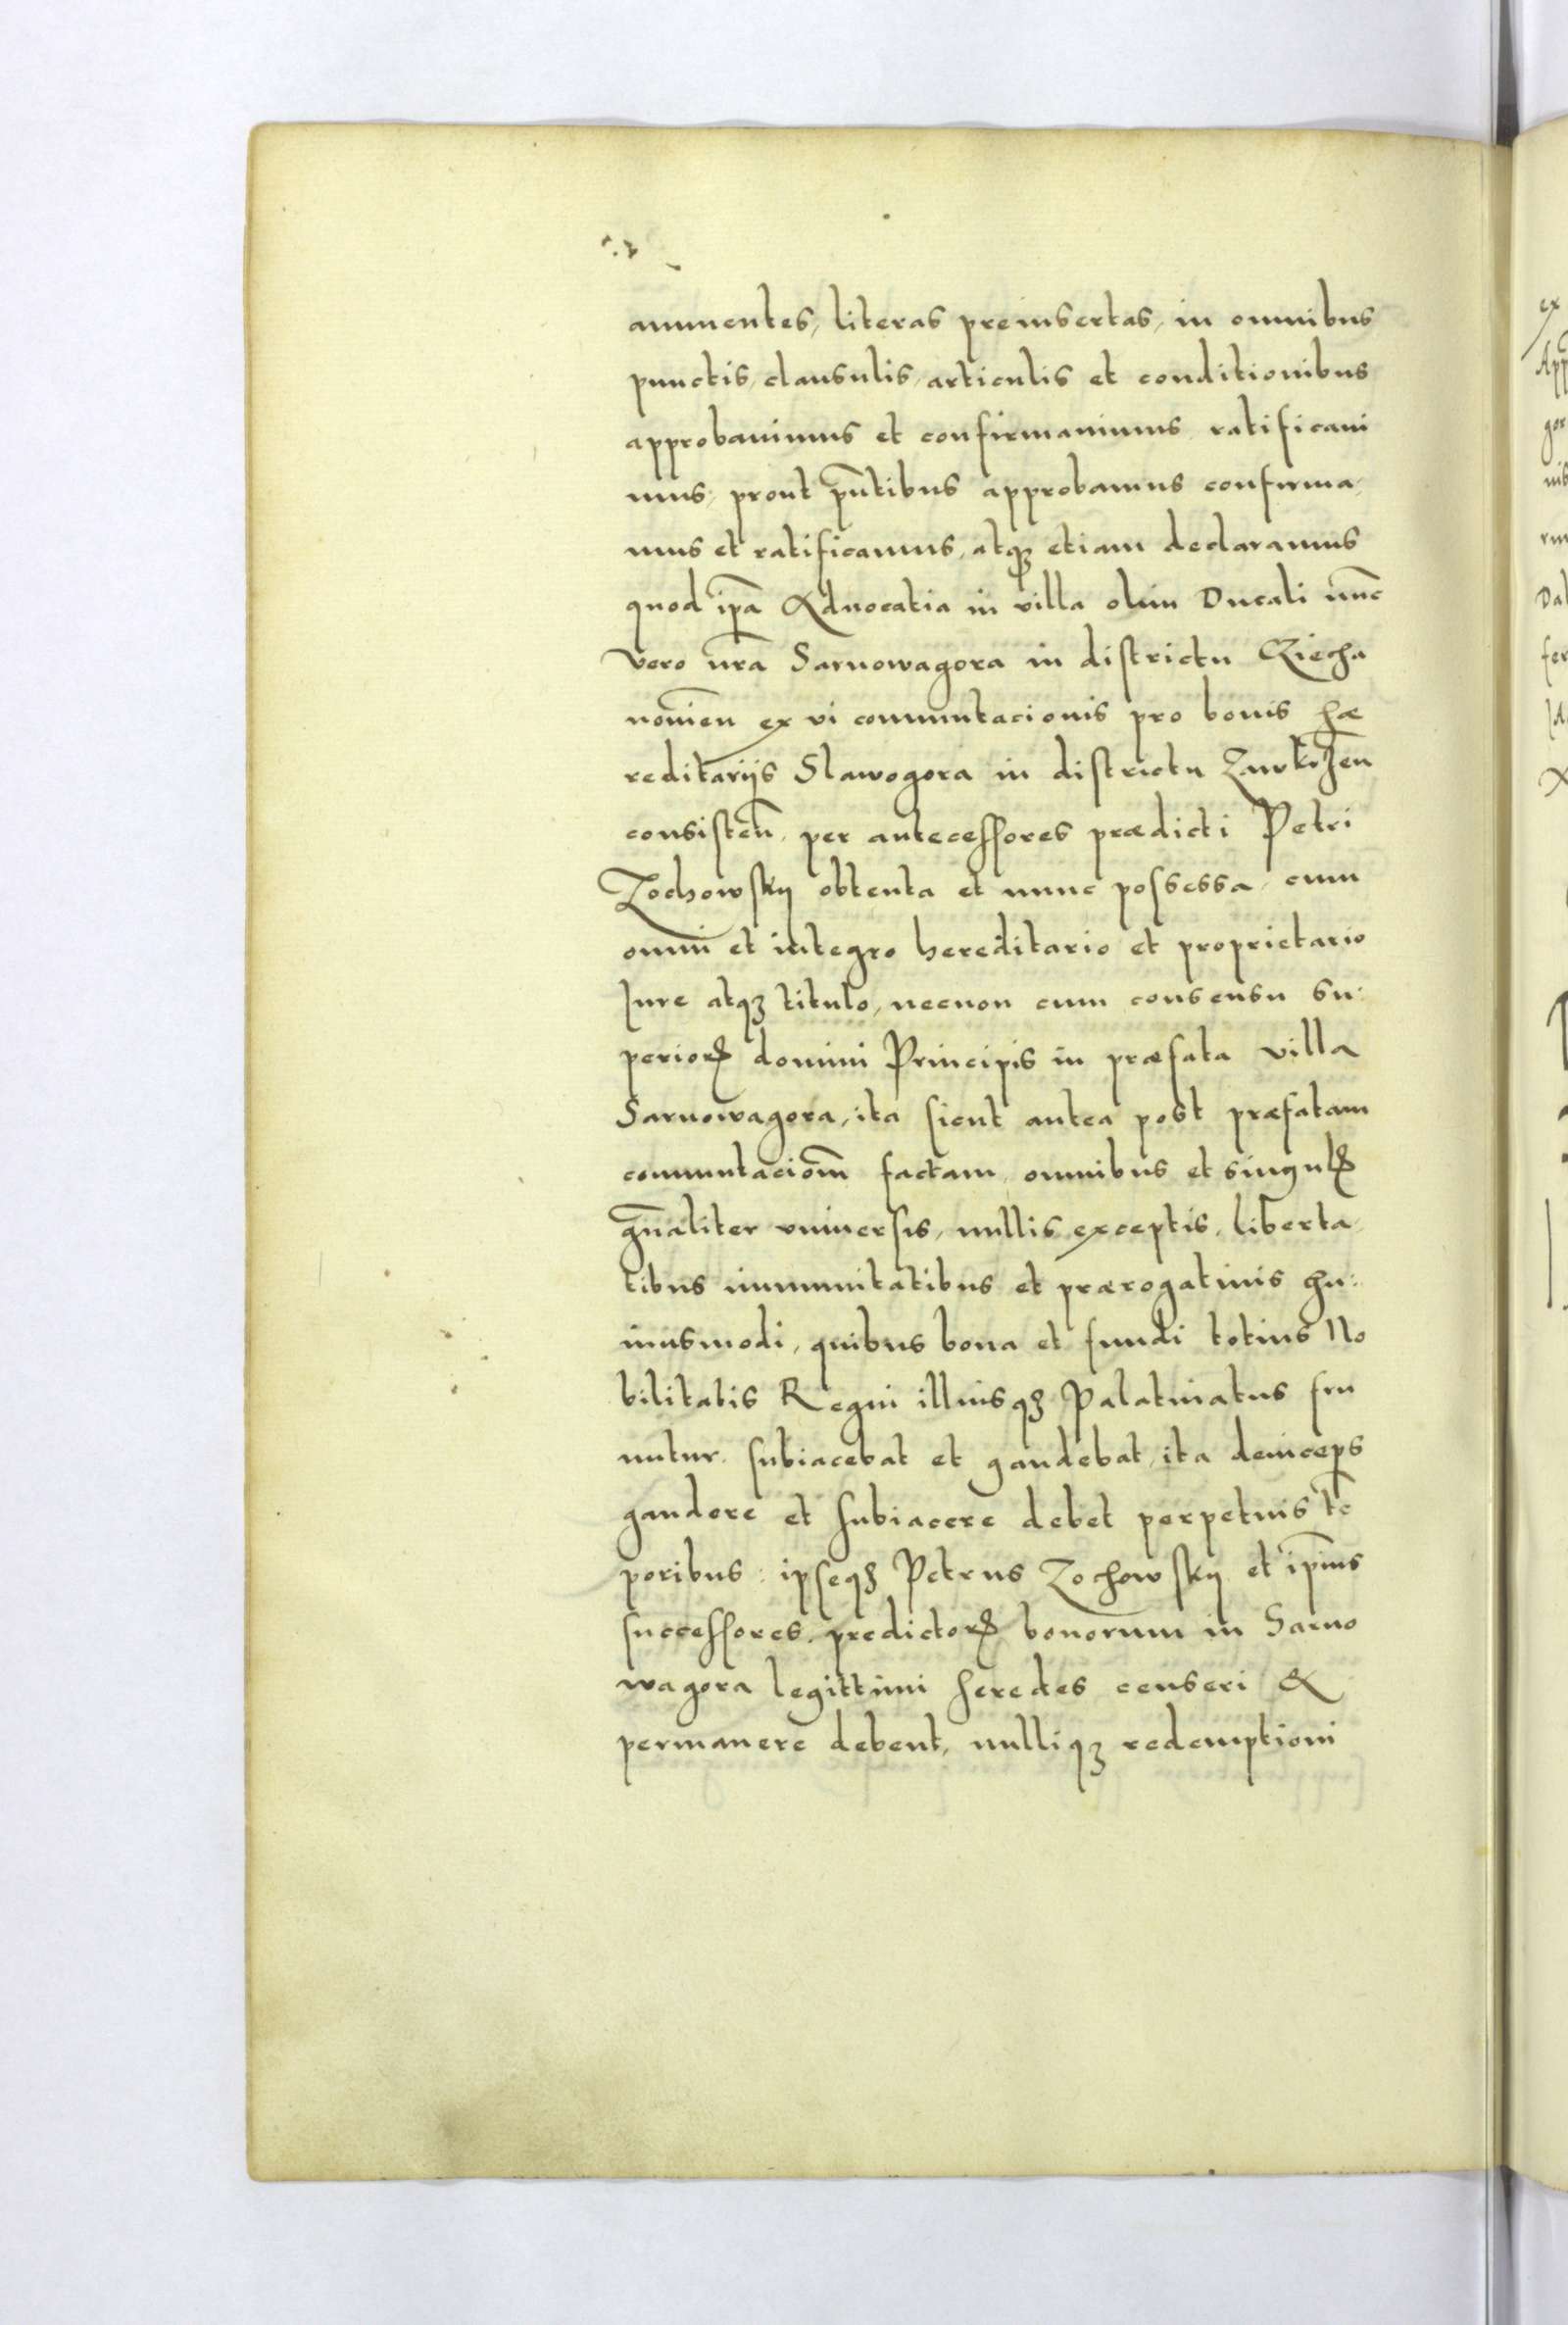 annuentes, literas preinsertas, in omnibus
punctis, clausulis, articulis et conditionibus
approbauimus et confirmauimus ratificaui
mus, prout pn̄tibus approbamus confirma,
mus et ratificamus, atqꝫ etiam declaramus
quod ip̄a Aduocatia in villa olim Ducali nūc
vero nr̄a Sarnowagora in districtu Cziecha
nouien̄ ex vi commutacionis pro bonis hæ
reditarijs Slawogora in districtu Zawkrzen̄
consisten̄, per antecessores prædicti Petri
Zochowskij obtenta et nunc possessa, cum
omni et integro hereditario et proprietario
Iure atqꝫ titulo, necnon cum consensu su:
perioꝝ domini Principis in præfata villa
Sarnowagora, ita sicut antea post præfatam
commutaciōm factam, omnibus et singulꝭ
gn̄aliter vniuersis, nullis exceptis, liberta,
tibus immunitatibus et prærogatiuis hu:
iusmodi, quibus bona et fundi totius No
bilitatis Regni illiusqꝫ Palatinatus fru
untur, subiacebat et gaudebat, ita deinceps
gaudere et subiacere debet perpetuis tē
poribus: ipseqꝫ Petrus Zochowskij et ip̄ius
successores, predictoꝝ bonorum in Sarno
wagora legittimi heredes censeri &
permanere debent, nulliqꝫ redemptioni